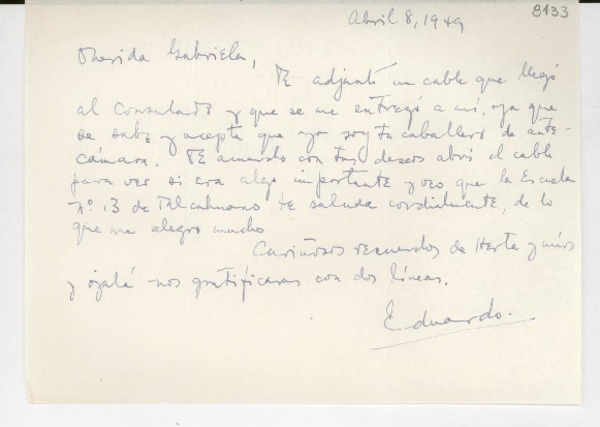 8133
Abril 8, 1949
Querida Gabriela,
Te adjunto un cable que llegó
al Consulado y que se me entregó a mí, ya que
se sabe y acepta que yo soy tu caballero de ante-
cámara. De acuerdo con tus deseos abrí el cable
para ver si era algo importante y veo que la Escuela
nº. 13 de Talcahuano te saluda cordialmente, de lo
que me alegro mucho
Cariñosos recuerdos de Herta y míos
y ojalá nos gratificaras con dos líneas.
Eduardo.